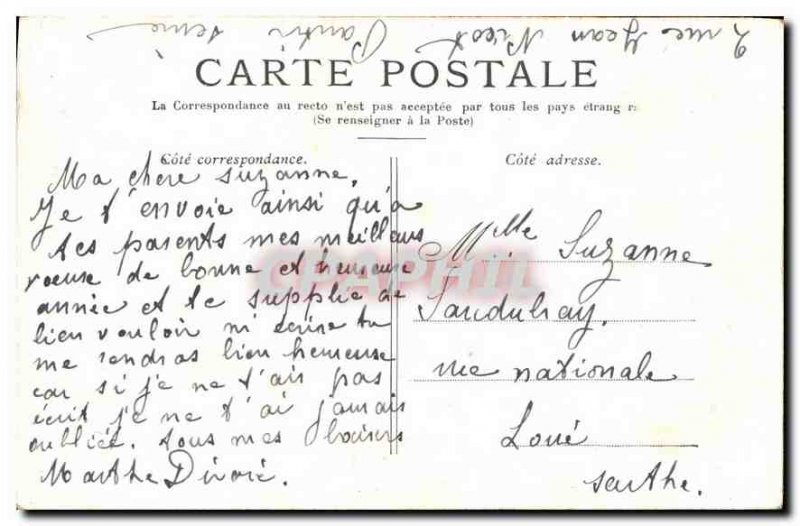 2 rue Jean Nicot Pantin seine
CARTE POSTALE
La Correspondance au recto n'est pas acceptée par tous les pays étrang rs
(Se renseigner à la Poste)
Côté correspondance.
Ma chere suzanne,
Je t'envoie ainsi qu'a
tes parents mes meilleurs
voeuse de bonne et heureuse
année et te supplie de
bien vouloir m'écrire tu
me rendras bien heureuse
car si je ne t'ais pas
écrit je ne t'ai jamais
oubliée. tous mes baisers
Marthe
Côté adresse.
Mlle Suzanne
rue nationale
Loué
sarthe.
CPAPHIL